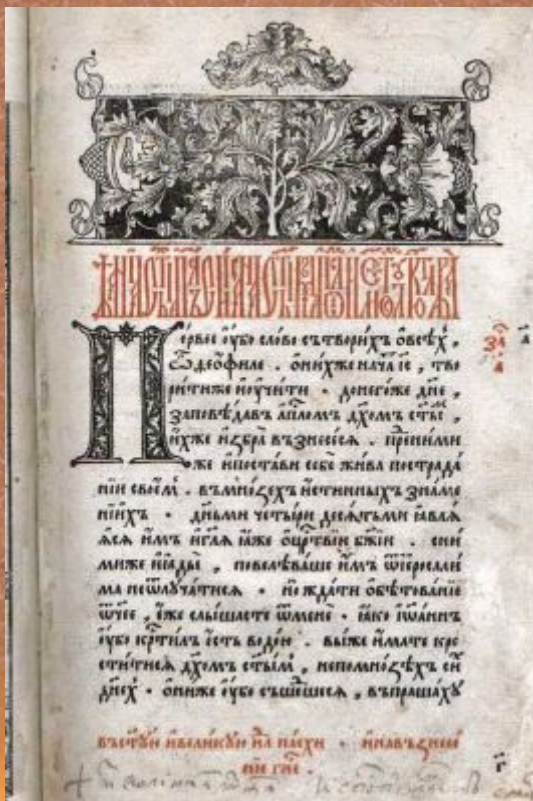 Пе́рвое ᲂу҆́бо сло́во сътвори́хъ ѡ҆всѣ́хъ ,
ѽ дєѻ҆́филе . ѻ҆ни́хже нача́ і҆с҃ , тво
ри́тиже и҆ᲂу҆чи́ти · донего́же дн҃е ,
заповѣ́давъ а҆пⷭ҇ломъ дх҃омъ ст҃ы́мъ ,
и҆́хже и҆збра̀ възнесе́сѧ . пре́ними
же и҆поста́ви себѐ жи́ва пострада́
нїи свое́мъ . въмно́зехъ и҆́стинныхъ зна́ме
нїихъ · дн҃ьми четы́ри десѧ́тьми ꙗ҆влѧ́
ѧсѧ и҆́мъ и҆гл҃ѧ ꙗ҆́же ѡ҆црⷭ҇твїи бж҃їи . сни́
миже и҆ꙗды́й , повелѣва́ше и҆́мъ ѿі҆ероᲇали́
ма неѿлꙋча́тисѧ · но жда́ти ѡ҆бѣтова́нїе
ѿч҃ее , є҆́же слы́шасте ѿменѐ · ꙗ҆́ко і҆ѡа́ннъ
ᲂу҆́бо крⷭ҇ти́лъ є҆́сть водо́ю . вы́же и҆́мате кре
сти́тисѧ дх҃омъ ст҃ы́мъ , непомно́зѣхъ си́хъ
дне́хъ · ѻ҆ни́же ᲂу҆́бо съше́дшесѧ , въпраша́хꙋ
въст҃ꙋ́ю и҆вели́кꙋю нл҃ю па́схи · и҆навъзнесе́
нїе гн҃е .
г҃